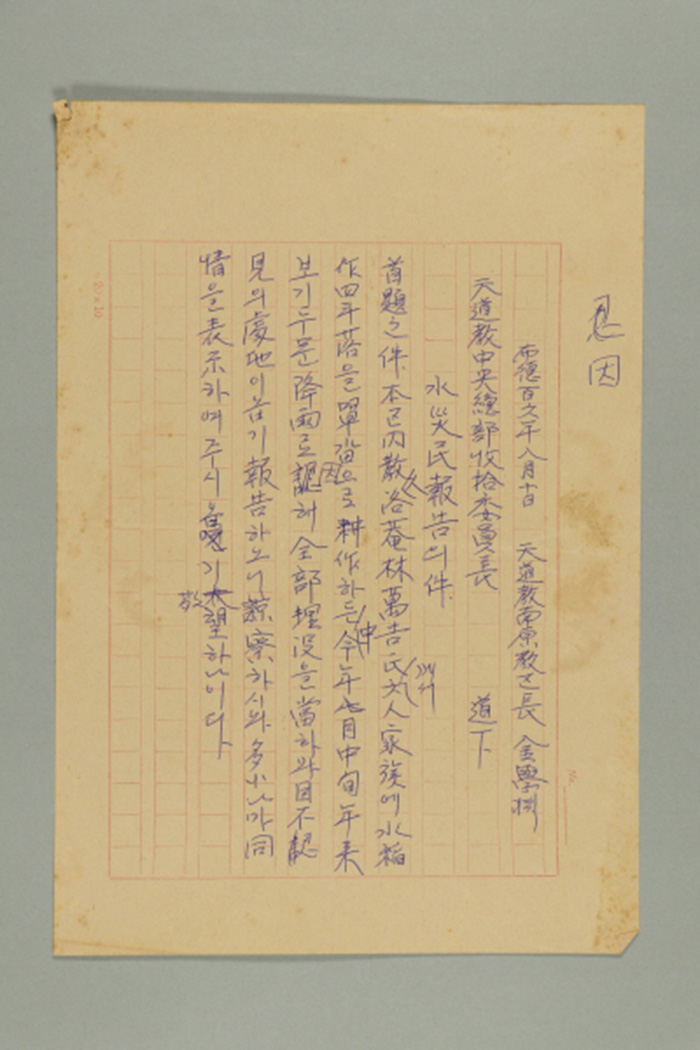 因
布德百 年八月十日 天道敎南原敎區長 金學
天道敎中央總部收拾委員長 道下
水災民報告의件
首題之件 本區內敎 洛菴 林萬吉氏 九人家族에 水稻
作四斗落을 單 으로 耕作하든中 今年七月中旬 年来
보기두문 降雨로 因해 全部埋没을當하와 目不認
見의處地이압기 報告하오니 諒察하시와 多少나마 同
情을 表示하여주시 기 敬望하나이다
20×10